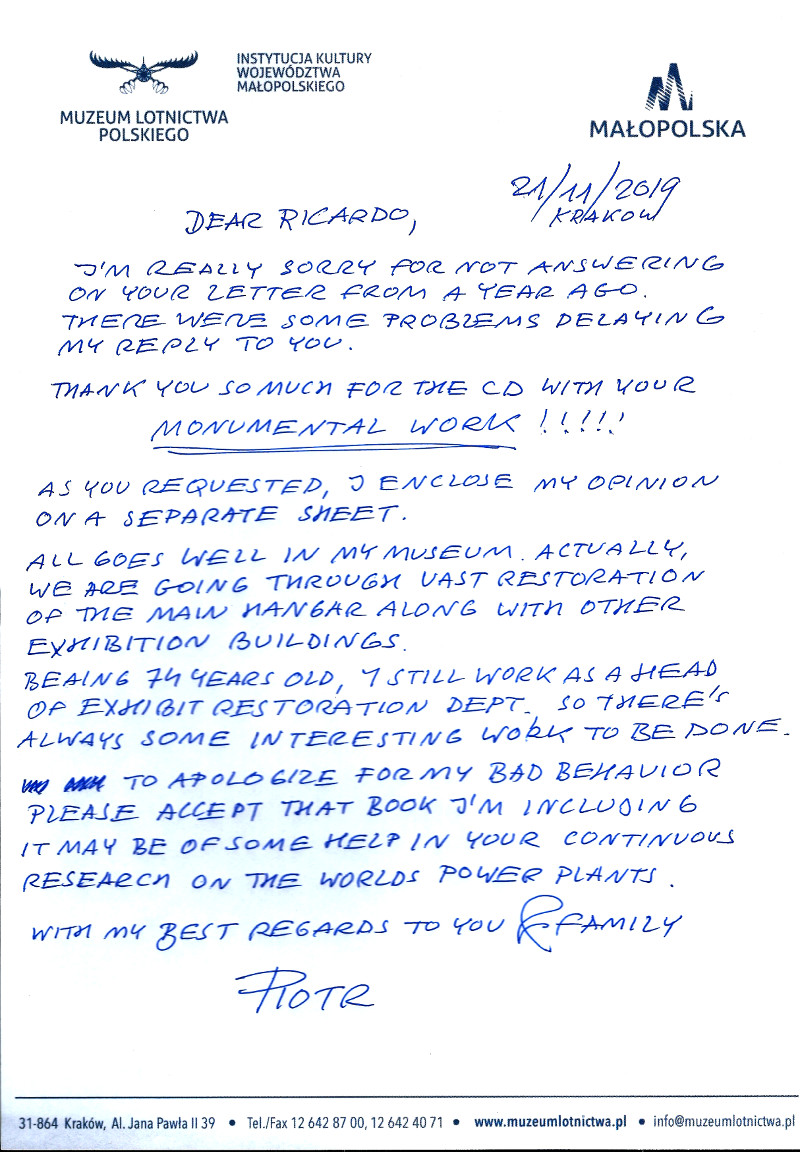 MUZEUM LOTNICTWA
POLSKIEGO
INSTYTUCJA KULTURY
WOJEWÓDZTWA
MAŁOPOLSKIEGO
MAŁOPOLSKA
21/11/2019
KRAKOW
DEAR RICARDO,
I'M REALLY SORRY FOR NOT ANSWERING
ON YOUR LETTER FROM A YEAR AGO.
THERE WERE SOME PROBLEMS DELAYING
MY REPLY TO YOU.
THANK YOU SO MUCH FOR THE CD WITH YOUR
MONUMENTAL WORK !!!!!
AS YOU REQUESTED, I ENCLOSE MY OPINION
ON A SEPARATE SHEET.
ALL GOES WELL IN MY MUSEUM. ACTUALLY,
WE ARE GOING THROUGH VAST RESTORATION
OF THE MAIN HANGAR ALONG WITH OTHER
EXHIBITION BUILDINGS.
BEAING 74 YEARS OLD, I STILL WORK AS A HEAD
OF EXHIBIT RESTORATION DEPT. SO THERE'S
ALWAYS SOME INTERESTING WORK TO BE DONE.
TO APOLOGIZE FOR MY BAD BEHAVIOR
PLEASE ACCEPT THAT BOOK I'M INCLUDING
IT MAY BE OF SOME HELP IN YOUR CONTINUOUS
RESEARCH ON THE WORLDS POWER PLANTS.
WITH MY BEST REGARDS TO YOU & FAMILY
PIOTR
31-864 Kraków, Al. Jana Pawła II 39 • Tel./Fax 12 642 87 00, 12 642 40 71 • www.muzeumlotnictwa.pl • info@muzeumlotnictwa.pl